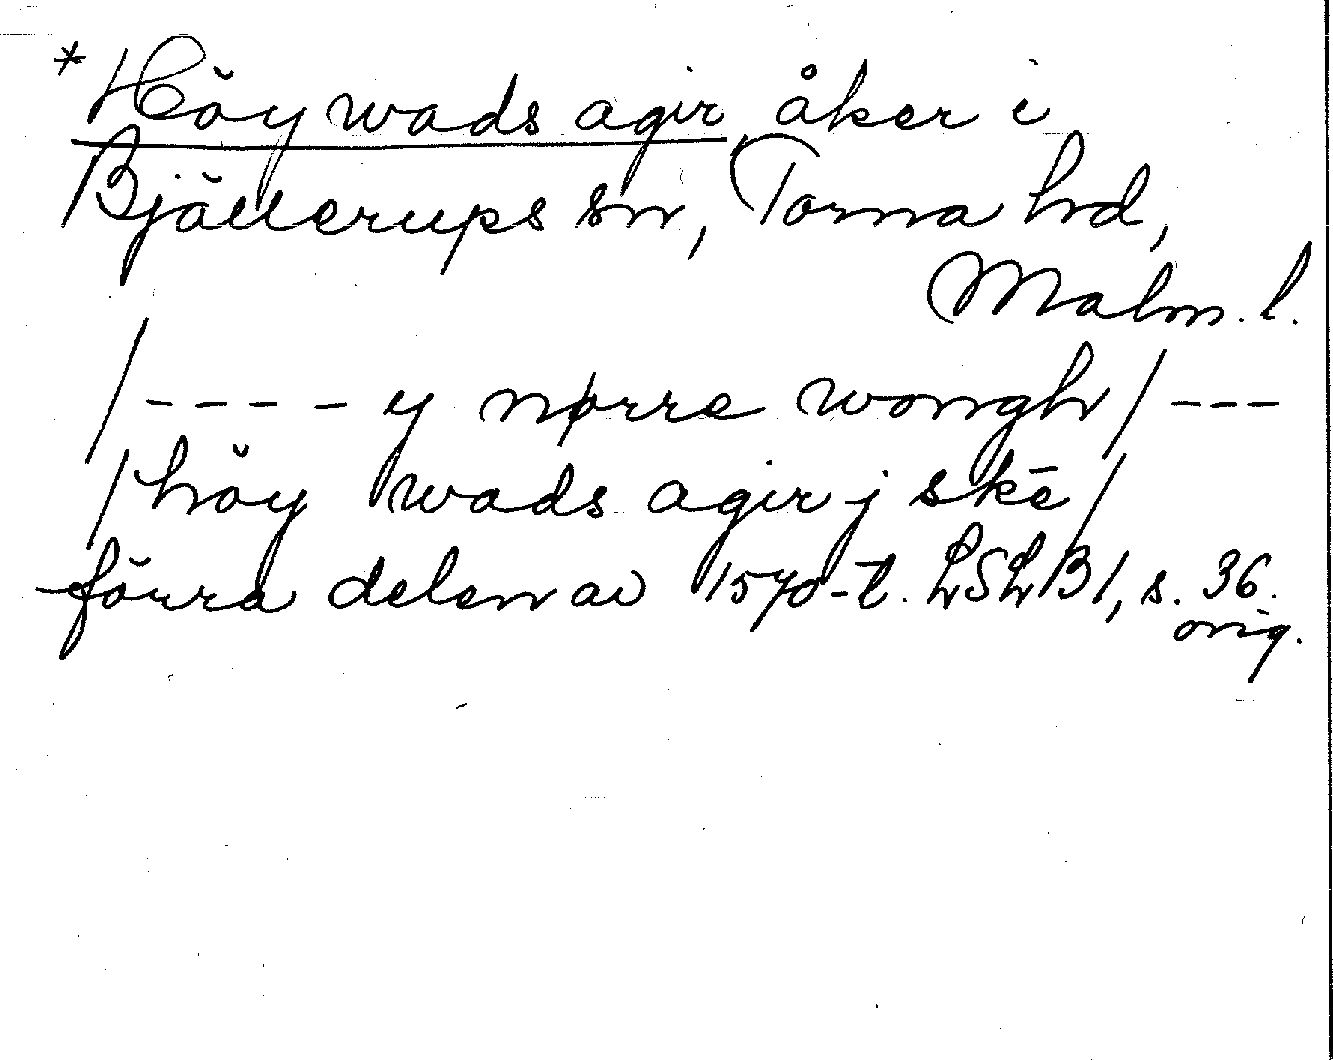 *Höy wads agir åker i
Bjällerups sn, Torna hd,
Malm. l.
/---- y nørre wongh/---
/höy wads agir j skē/
förra delen av 1570-t. LSLB 1, s. 36.
orig.